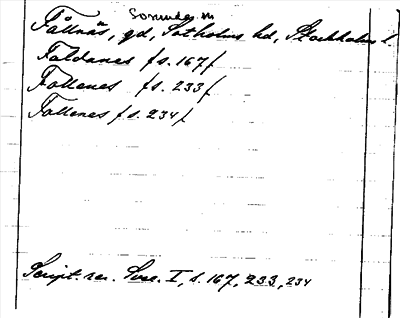 Sorunda sn
Fållnäs, gd, Sotholms hd, Stockholms l.
Faldanes /s. 167/
Follenes /s. 233/
Follenes /s. 234/
Script. rer. Svec. I, s. 167, 233, 234